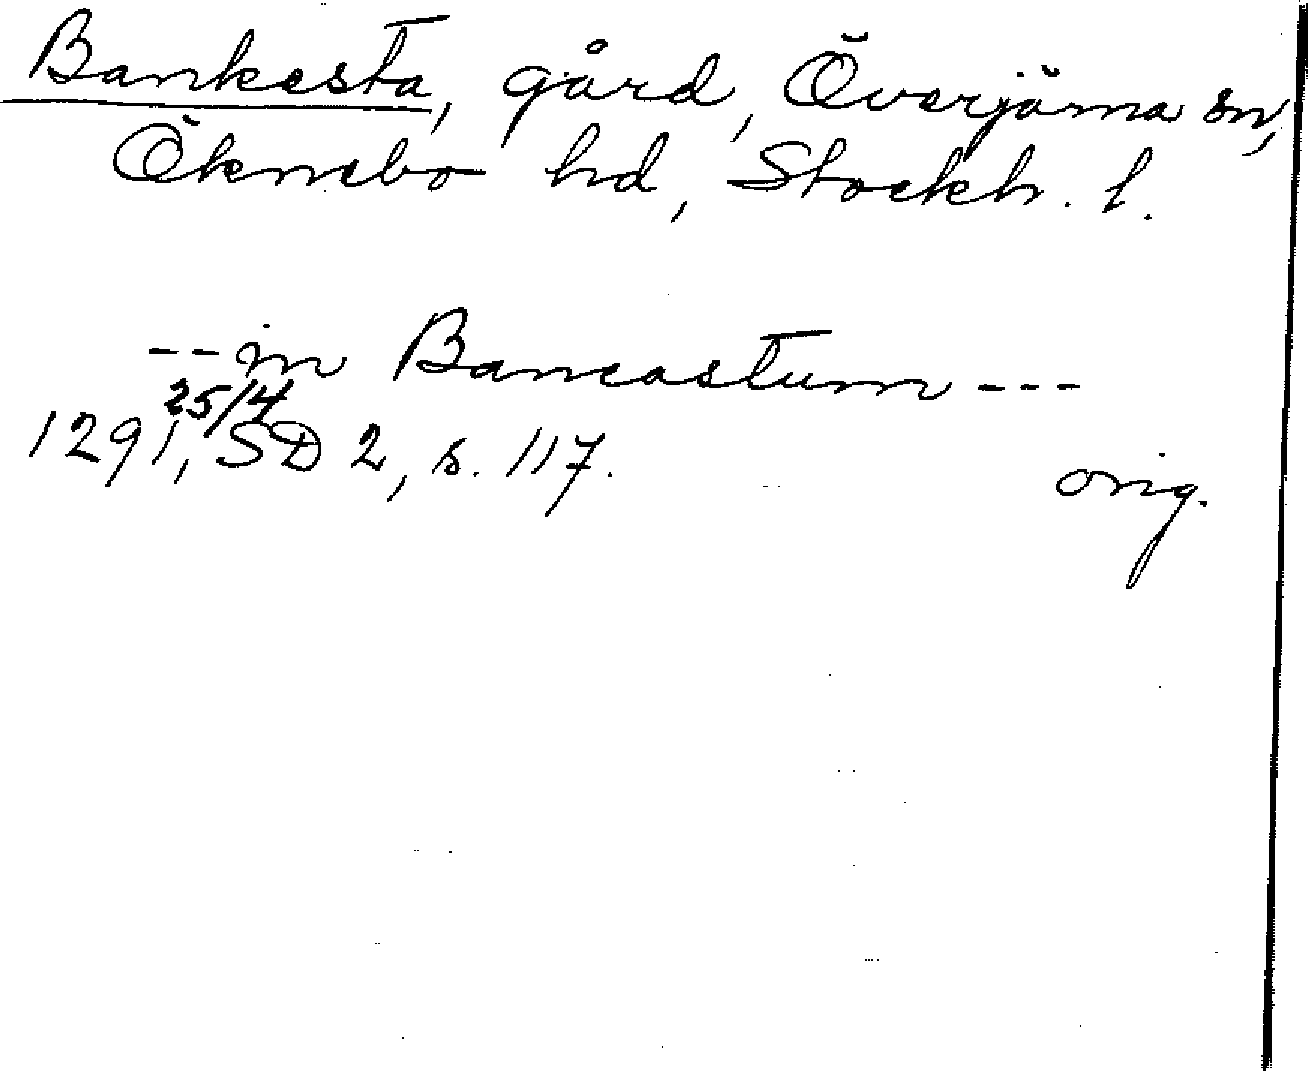 Bankesta, gård, Överjärna sn,
Öknebo hd, Stockh. l.
--in Bancastum---
25/4
1291, SD 2, s. 117.
orig.